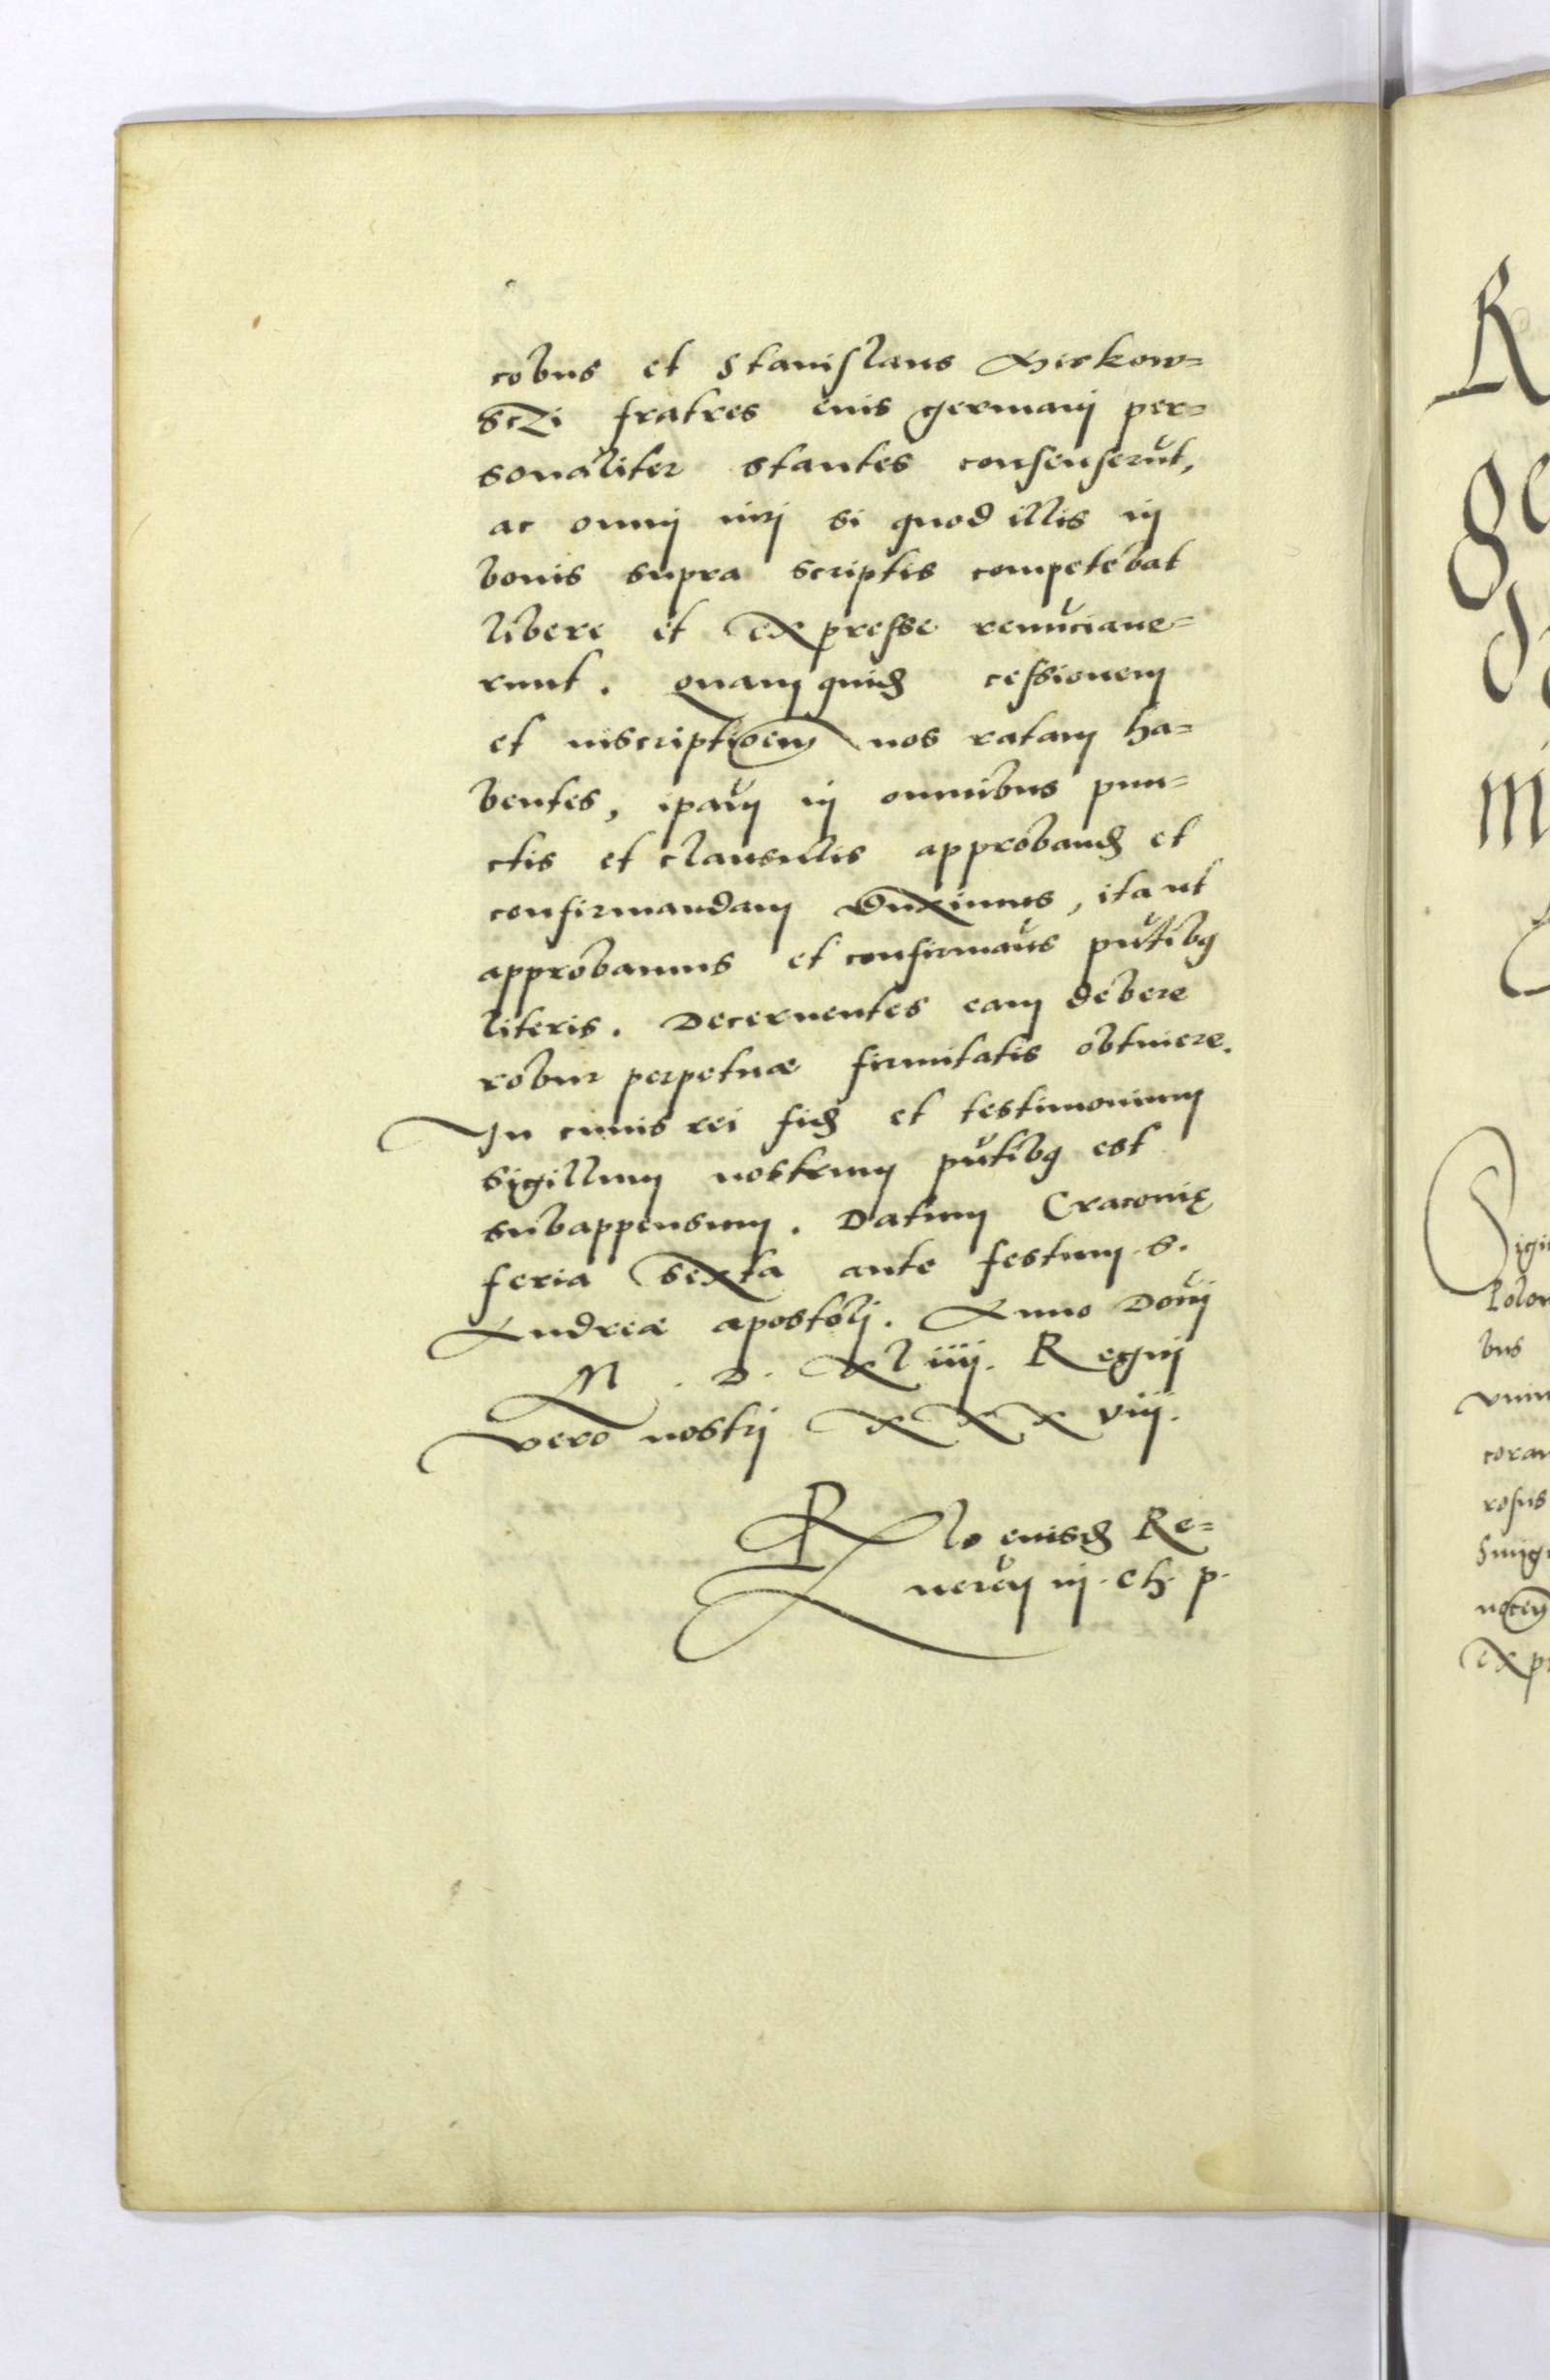 cobus et Stanislaus Myskow=
sczi fratres eius germanj per=
sonaliter stantes consenserūt,
ac omnj iurj si quod illis in
bonis supra scriptis competebat
libere et expresse renūciaue=
runt. quam quid cessionem
et inscriptioem nos ratam ha=
bentes, ipam in omnibus pun=
ctis et clausulis approband et
confirmandam duximus, ita ut
approbamus et confirmaūs pūtibq
literis. Decernentes eam debere
robur perpetuæ firmitatis obtinere.
In cuius rei fid et testimonium
sigillum nostrum pūtibq est
subappensum. Datum Cracouię
feria sexta ante festum s.
Andreæ apostolj. Anno Donj
M. D. Xliiij. Regnj
vero nostrj XXXviij.
Rlo eiusd Re=
uerēn in. Ch. p.
R
ge
m
Sigi
Polon
bus
vniu
coram
rosus